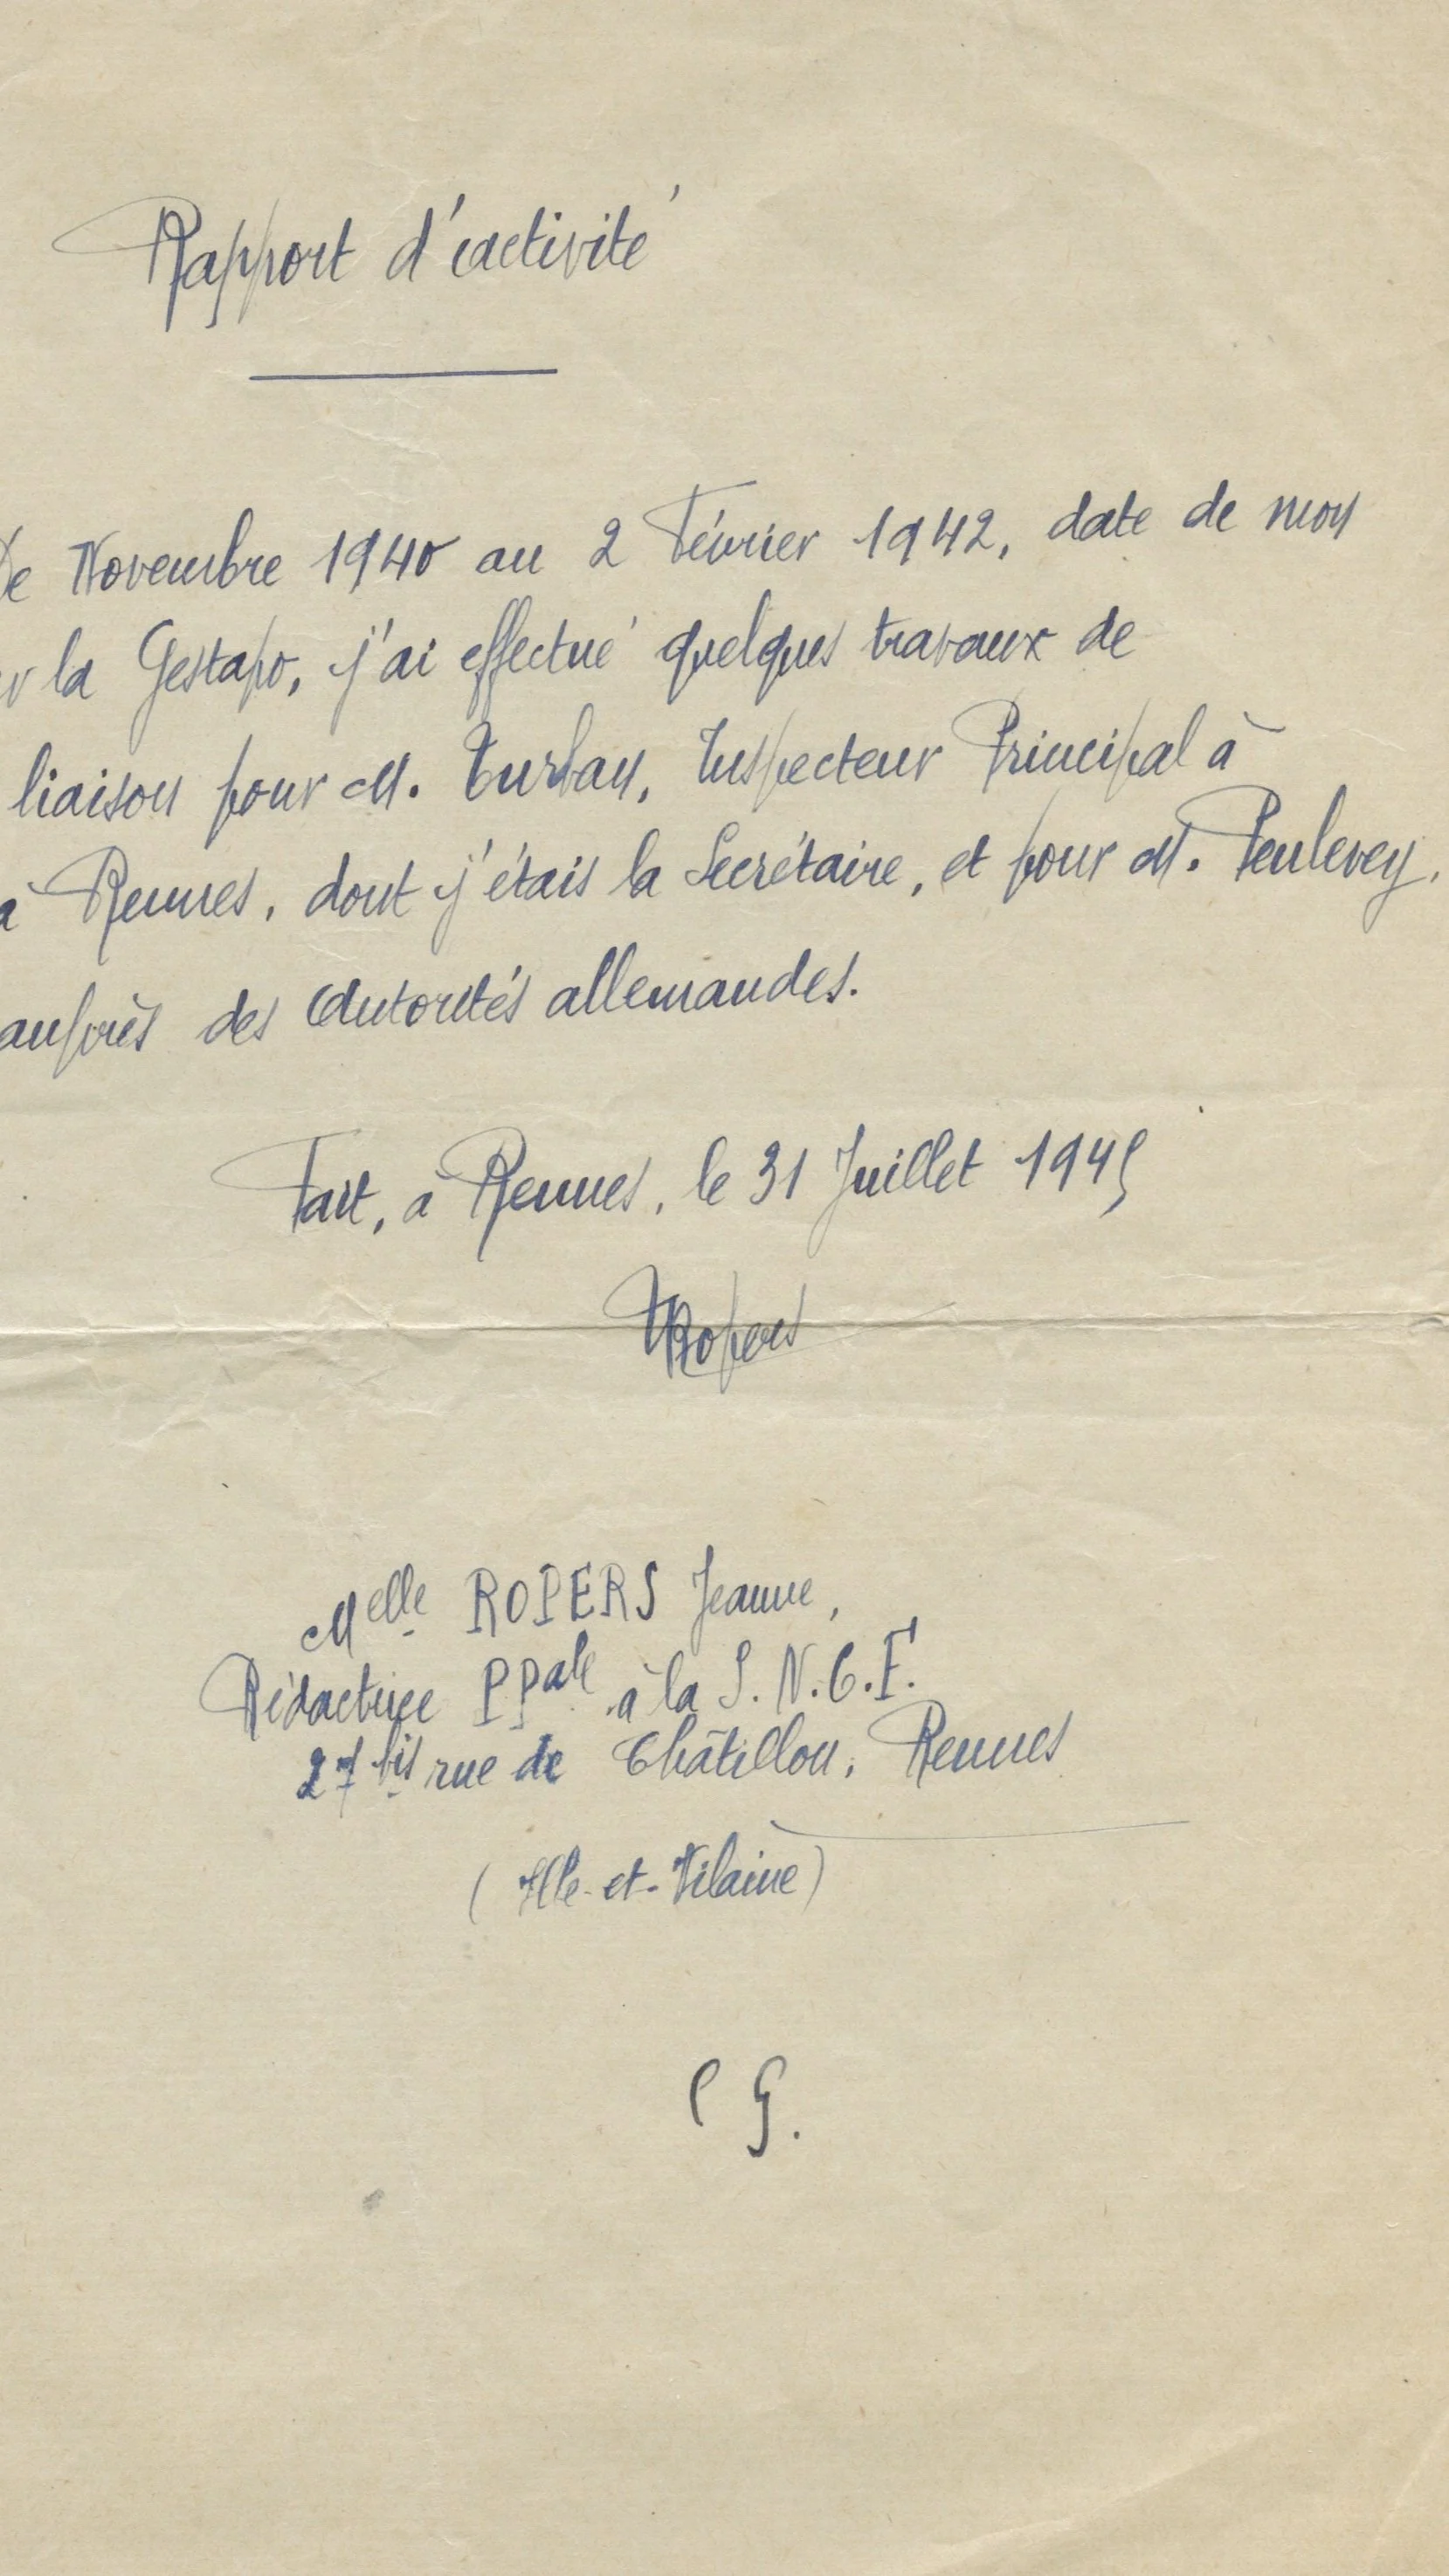 Rapport d'activité
De Novembre 1940 au 2 Février 1942, date de mon
la Gestapo, j'ai effectué quelques travaux de
liaison pour M. Turban, Inspecteur Principal à
à Rennes, dont j'étais la Secrétaire, et pour M. Peulevey,
auprès des Autorités allemandes.
Fait, à Rennes, le 31 Juillet 1945
Ropers
Melle ROPERS Jeanne,
Rédactrice PPale à la S.N.C.F.
27 bis rue de Châtillon, Rennes
(Ille-et-Vilaine)
G.